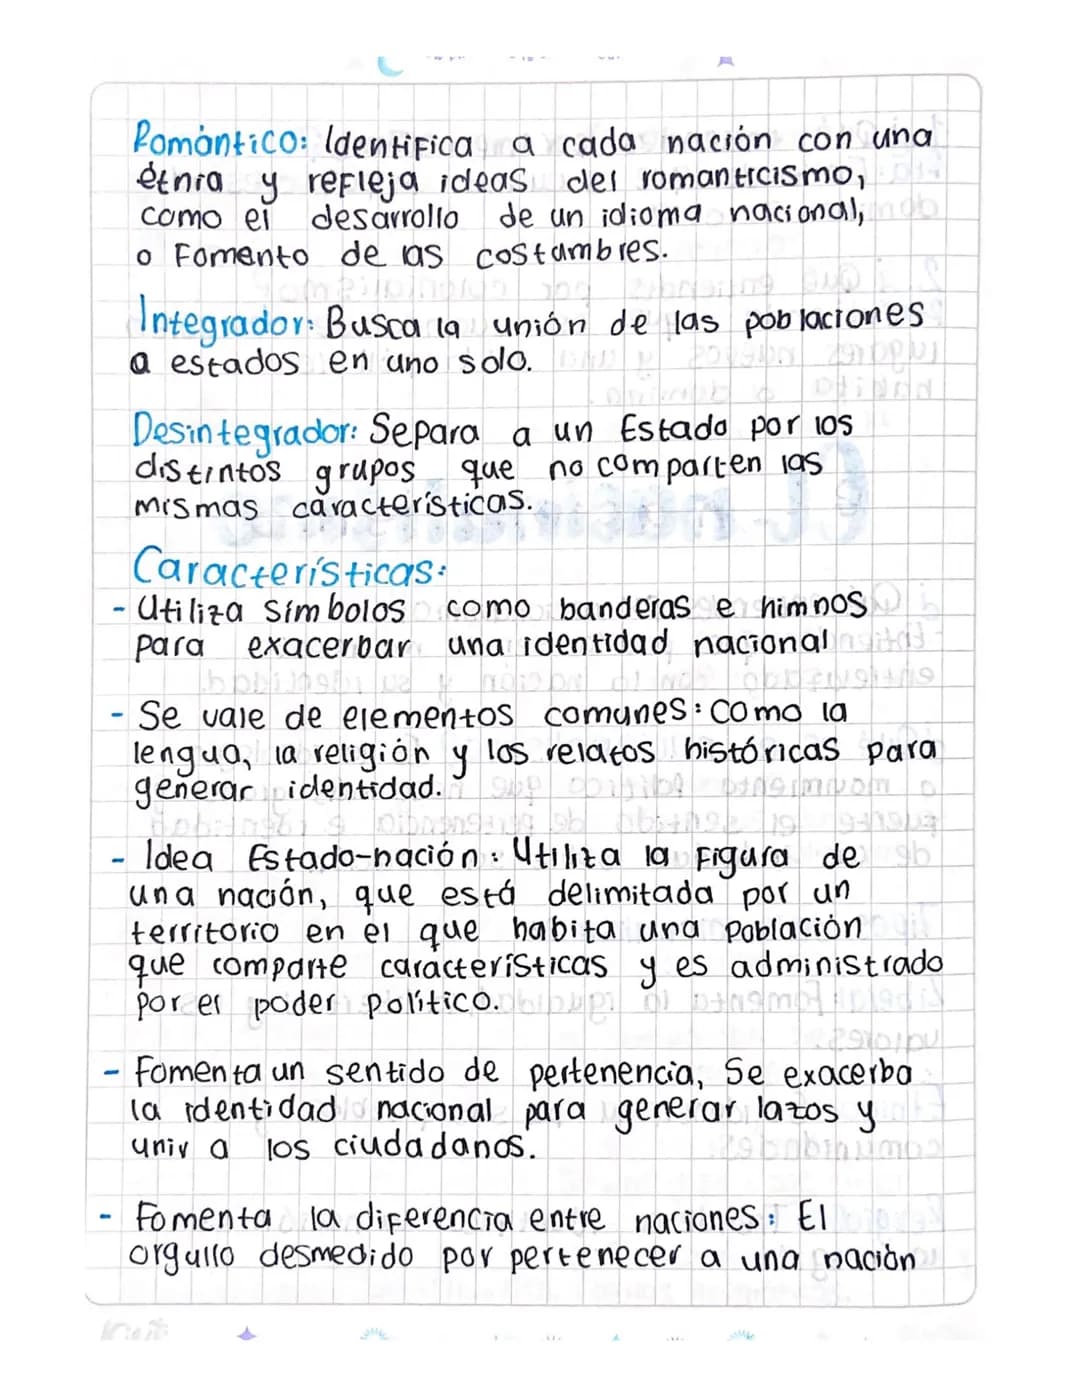 Romántico: Identifica a cada nación con una
étnia y refleja ideas del romanticismo,
como el desarrollo de un idioma nacional,
o Fomento de las costumbres.
Integrador: Busca la unión de las poblaciones
a estados en uno solo.
Desintegrador: Separa a un Estado por los
distintos grupos que no comparten las
mismas características.
Características:
- Utiliza símbolos como banderas e himnos
para exacerbar una identidad nacional
- Se vale de elementos comunes: como la
lengua, la religión y los relatos históricas para
generar identidad.
- Idea Estado-nación: Utiliza la Figura de
una nación, que está delimitada por un
territorio en el que habita una población
que comparte características y es administrado
por el poder político.
- Fomenta un sentido de pertenencia, Se exacerba
la identidad nacional para generar lazos y
unir a los ciudadanos.
- Fomenta la diferencia entre naciones: El
orgullo desmedido por pertenecer a una nación